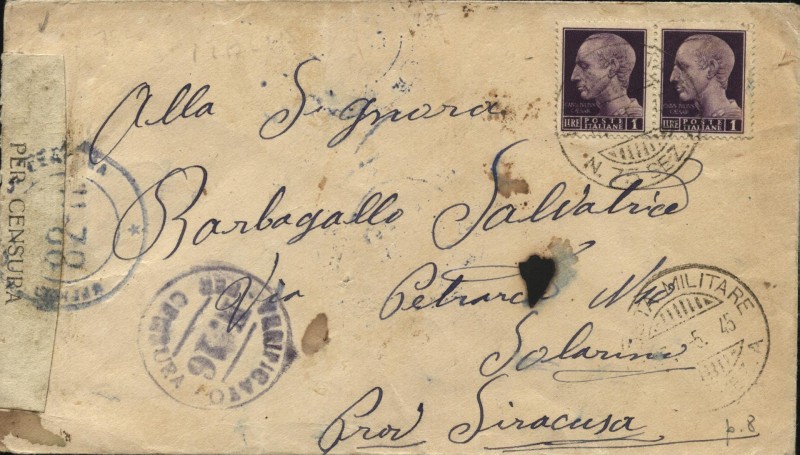 Alla Signora
Barbagallo Salvatrice
Via Petrarca
Solarino
Prov Siracusa
p. 8
LIRE POSTE ITALIANE 1
LIRE POSTE ITALIANE 1
N. SEZ
MILITARE
5. 45
A
PER CENSURA
VERIFICATO PER CENSURA
16